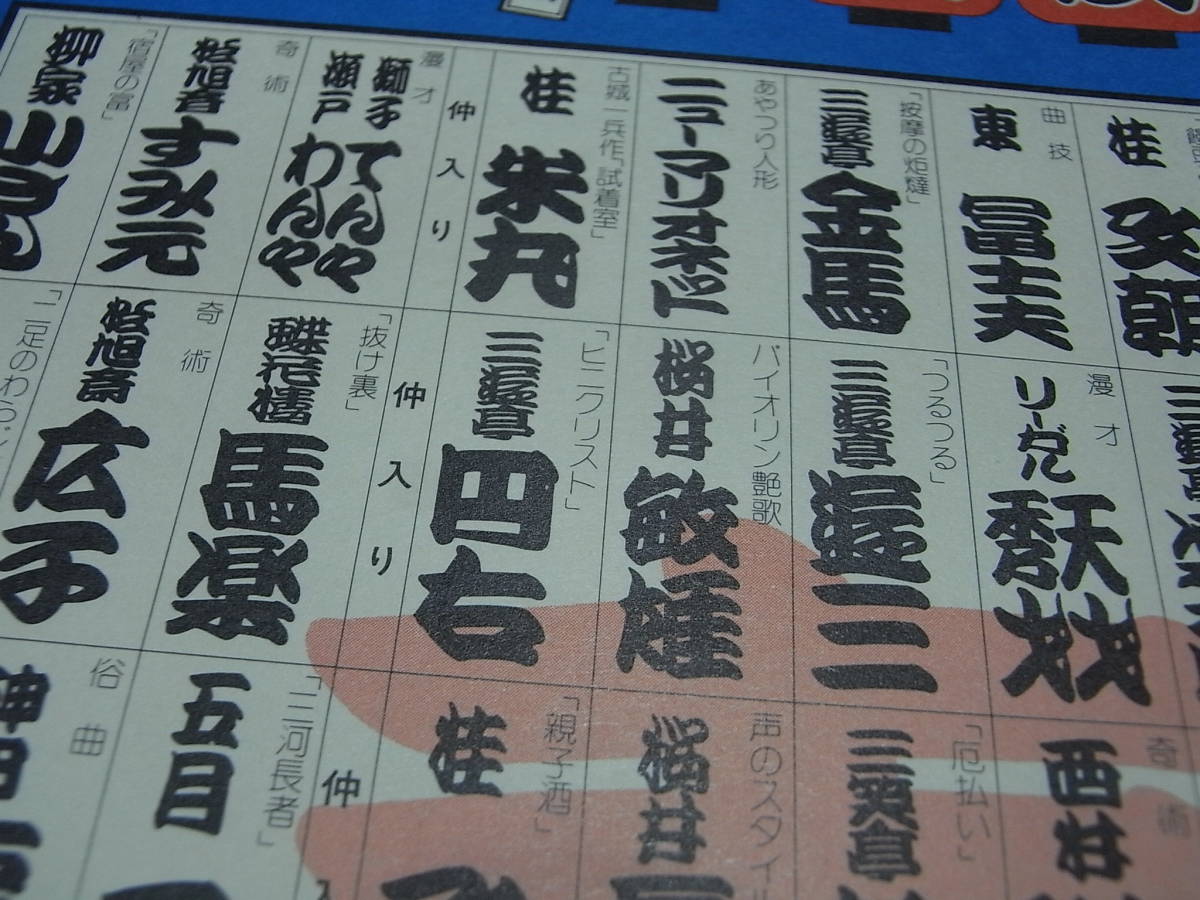 桂
文朝
曲技
東
富士夫
「按摩の炬燵」
三遊亭
金馬
あやつり人形
ニューマリオネット
古城一兵作「試着室」
桂
米丸
仲入り
漫才
獅子てんや
瀬戸わんや
奇術
松旭斎
すみ元
「宿屋の富」
柳家
小さん
漫才
リーガル
天才
秀才
「つるつる」
三遊亭
遊三
バイオリン艶歌
桜井
敏雄
「ヒニクリスト」
三遊亭
円右
仲入り
「抜け裏」
蝶花楼
馬楽
奇術
松旭斎
広子
奇術
西
「厄払い」
三笑亭
声のスタイル
桜井
「親子酒」
桂
仲
「三河長者」
五目
俗曲